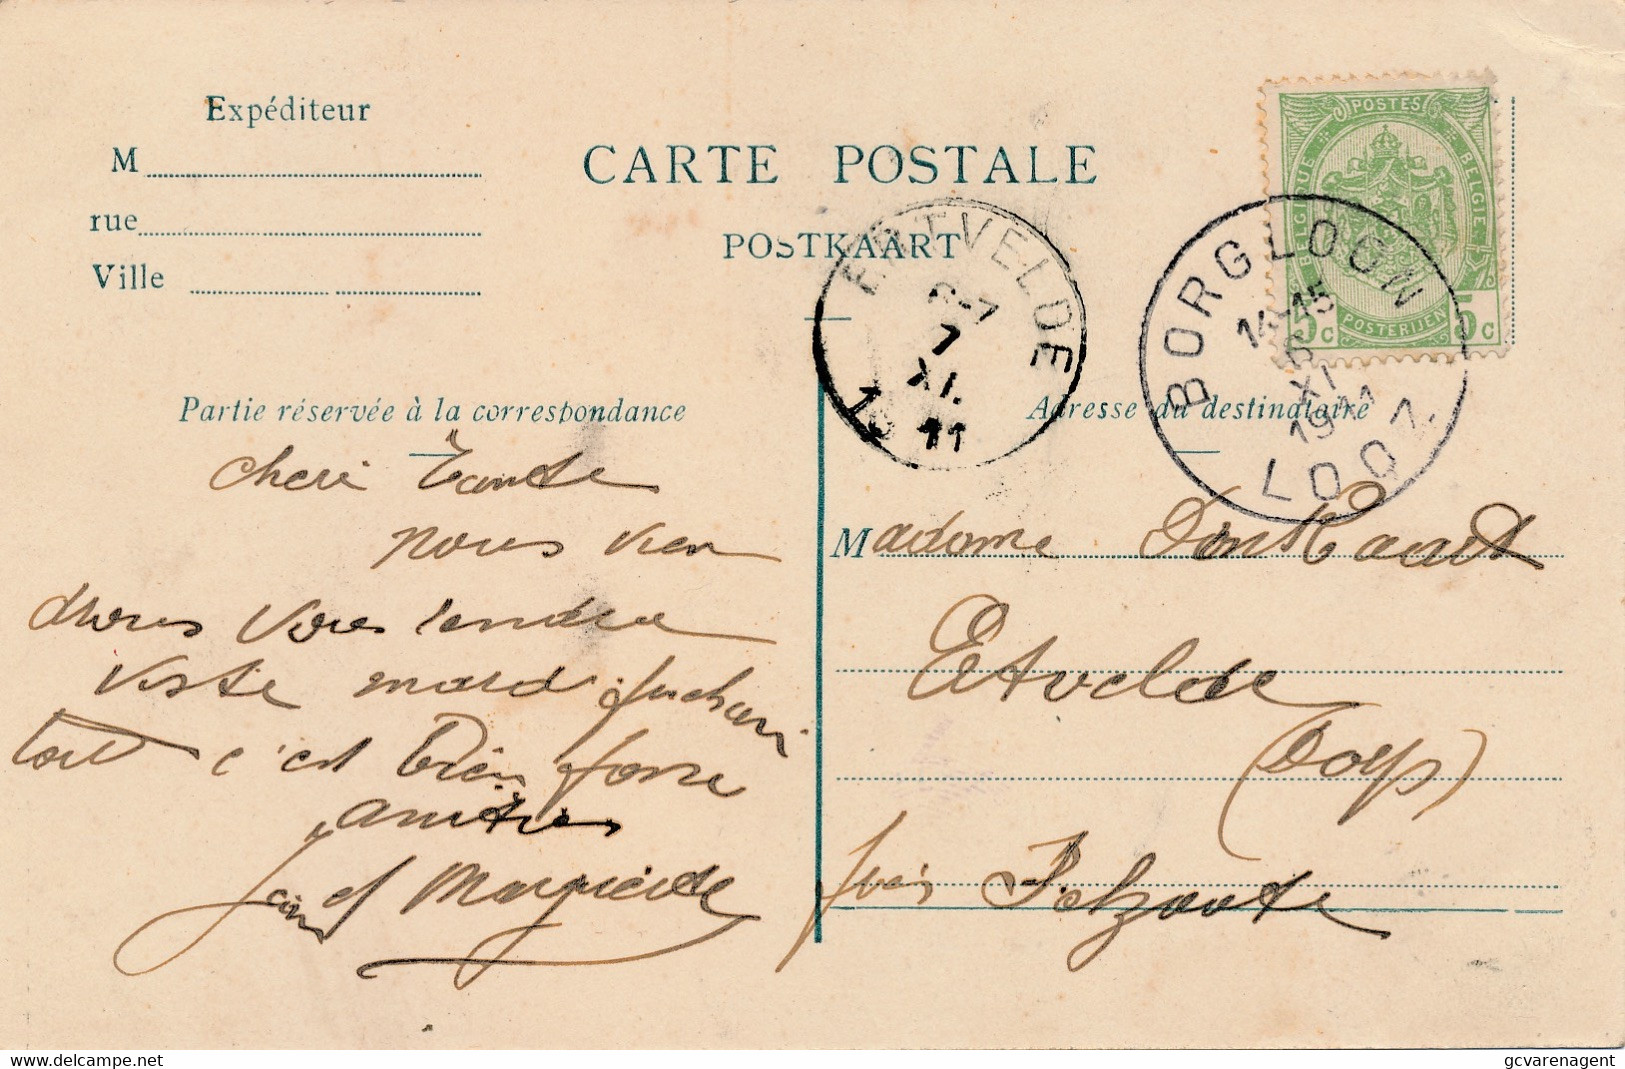 Expéditeur
M
rue
Ville
CARTE POSTALE
POSTKAART
POSTES
BELGIQUE
BELGIE
5c POSTERIJEN 5c
ERTVELDE
6-7
7
XI.
11
19
BORGLOON
14-15
6
XI
1911
LOOZ
Partie réservée à la correspondance
Adresse du destinataire
cheri Tante
nous vien
drons vous rendre
visite mard prochain
tout c'est bien passe
amitiés
Jean et Marguerite
Madame Donkaert
Etvelde
(Dorp)
près Selzaete
gcvarenagent